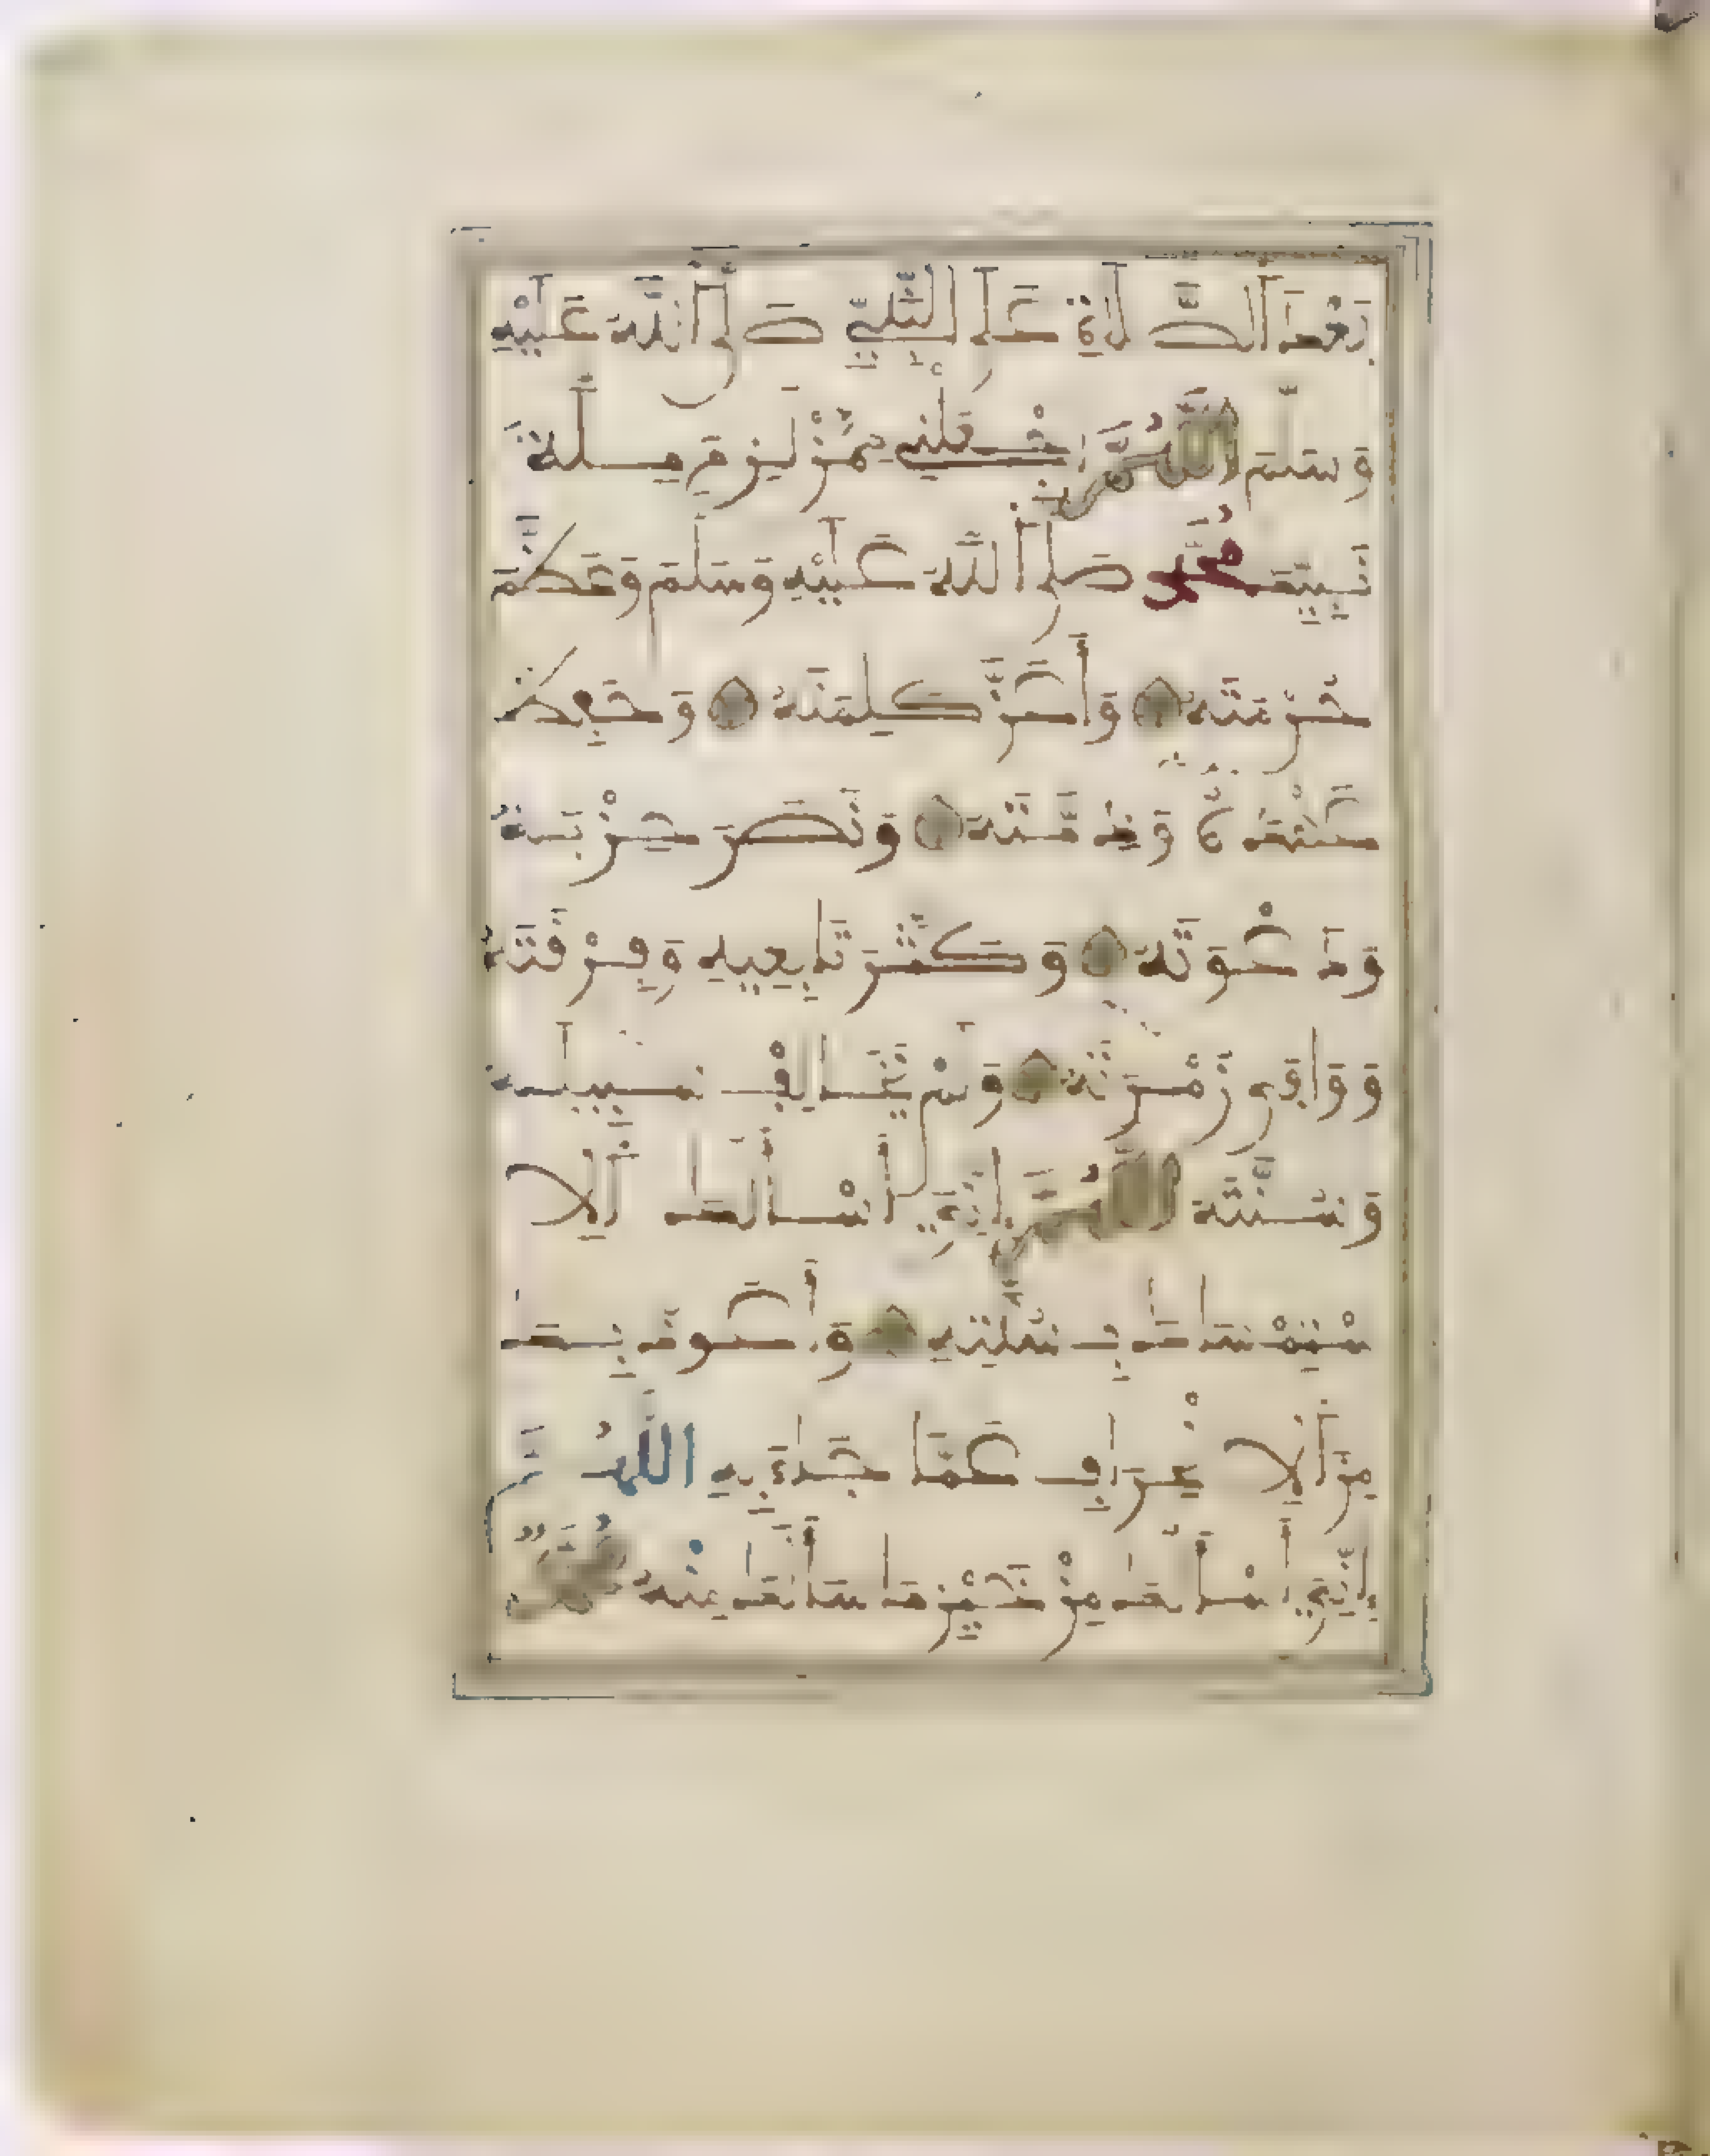 بَعْدَ الصَّلَاةِ عَلَى النَّبِيِّ صَلَّى اللَّهُ عَلَيْهِ
وَسَلَّمَ اللَّهُمَّ اجْعَلْنِي مِمَّنْ لَزِمَ مِلَّةَ
نَبِيِّكَ مُحَمَّدٍ صَلَّى اللَّهُ عَلَيْهِ وَسَلَّمَ وَعَظَّمَ
حُرْمَتَهُ وَأَعَزَّ كَلِمَتَهُ وَحَفِظَ
عَهْدَهُ وَذِمَّتَهُ وَنَصَرَ حِزْبَهُ
وَدَعْوَتَهُ وَكَثَّرَ تَابِعِيهِ وَفِرْقَتَهُ
وَوَافَى زُمْرَتَهُ وَلَمْ يُخَالِفْ سَبِيلَهُ
وَسُنَّتَهُ اللَّهُمَّ إِنِّي أَسْأَلُكَ الِا
سْتِمْسَاكَ بِسُنَّتِهِ وَأَعُوذُ بِكَ
مِنَ الِانْحِرَافِ عَمَّا جَاءَ بِهِ اللَّهُمَّ
إِنِّي أَسْأَلُكَ مِنْ خَيْرِ مَا سَأَلَكَ مِنْهُ مُحَمَّدٌ